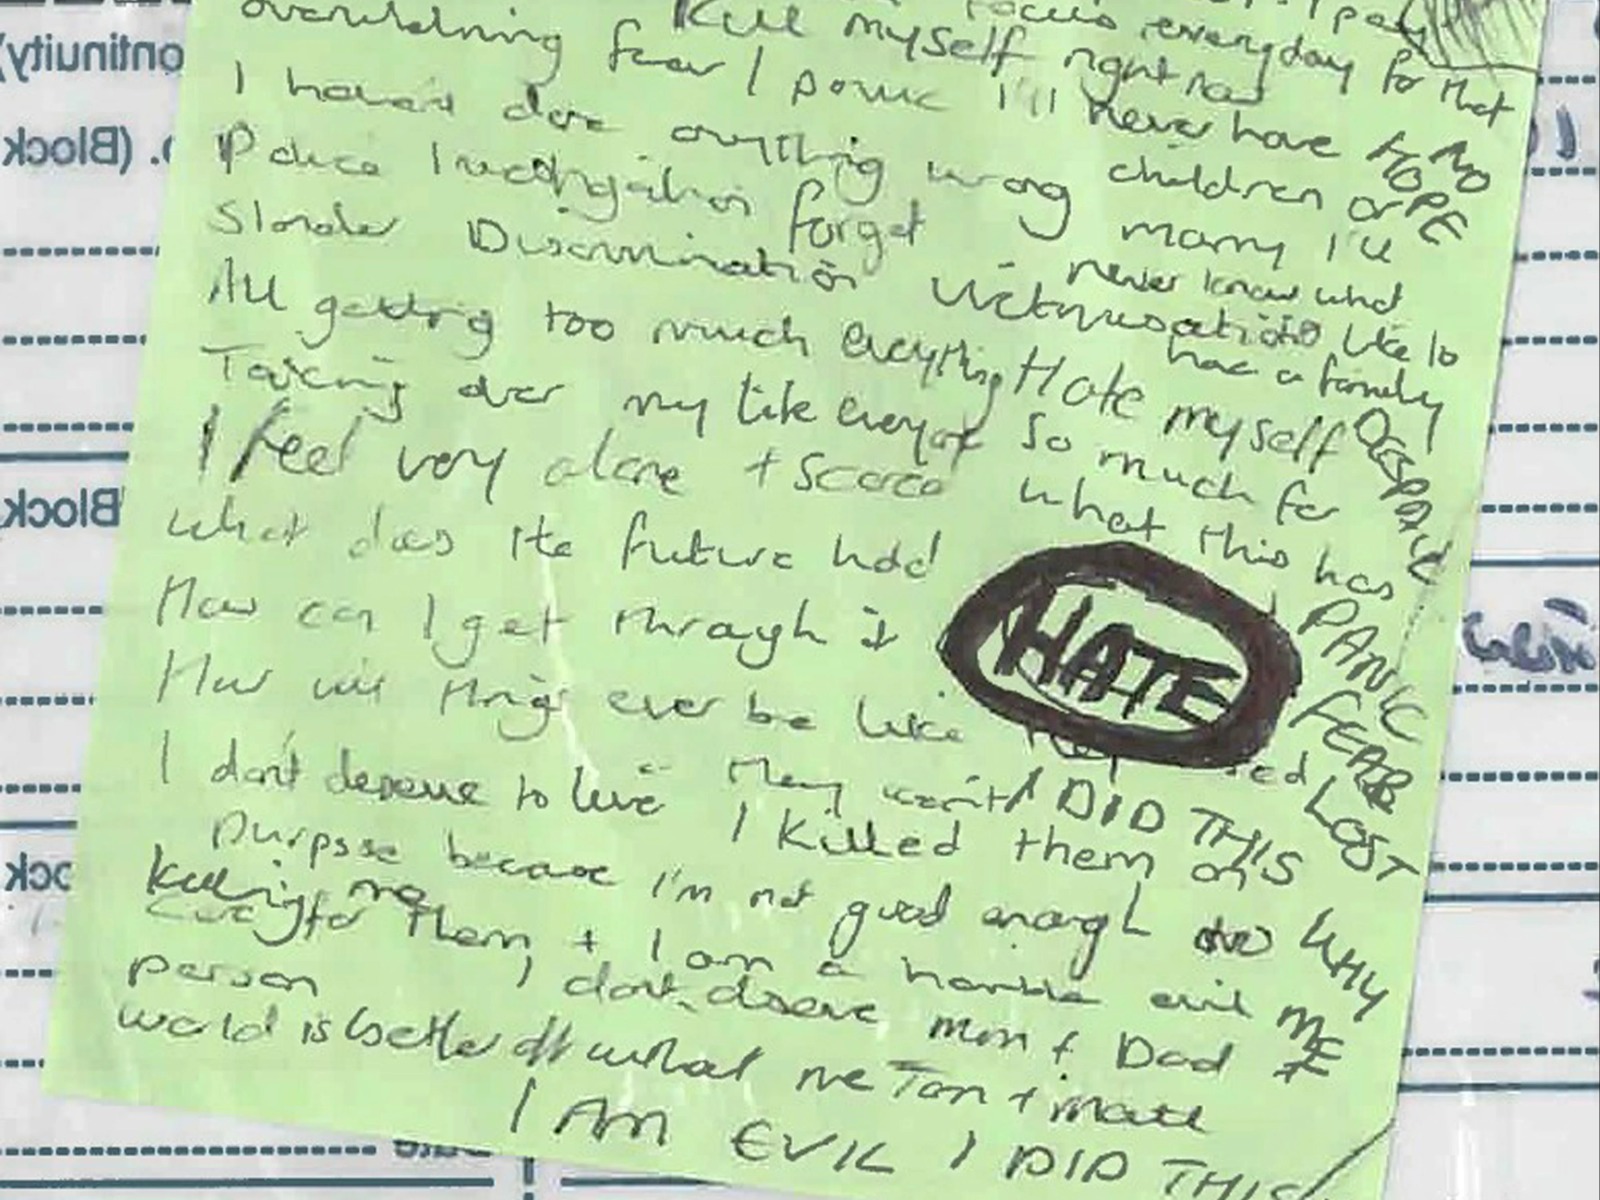 overwhelming fear / panic
Kill myself right now
focus everyday for that
I'll never have
children or
marry I'll
never know what
like to
have a family
NO
HOPE
I haven't done anything wrong
Police Investigation forget
Slander Discrimination Victimisation
All getting too much everything
Taking over my life everyone
Hate myself
so much for
what this has
DESPAIR
I feel very alone + scared
what does the future hold
How can I get through it
HATE
PANIC
FEAR
LOST
How will things ever be like
I don't deserve to live
They went
I DID THIS
I killed them on
purpose because I'm not good enough
WHY
ME
killing me
care for them + I am a horrible evil
person I don't deserve mum + Dad
world is better off without me Tom + Matt
I AM EVIL I DID THIS
ontinuity)
(Block
Block
ock
Date